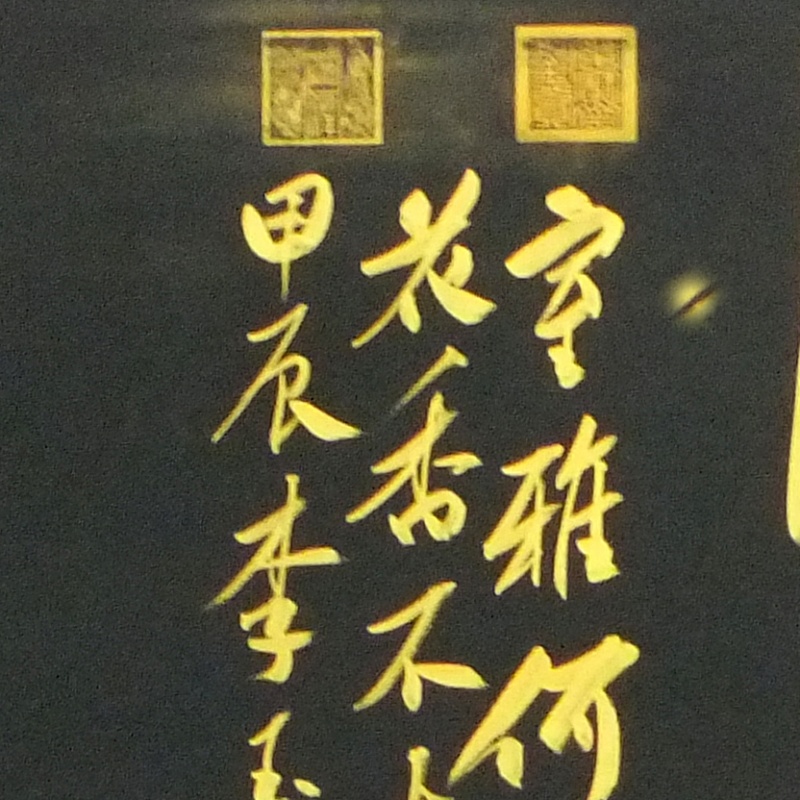 室雅何
花香不
甲辰李玉